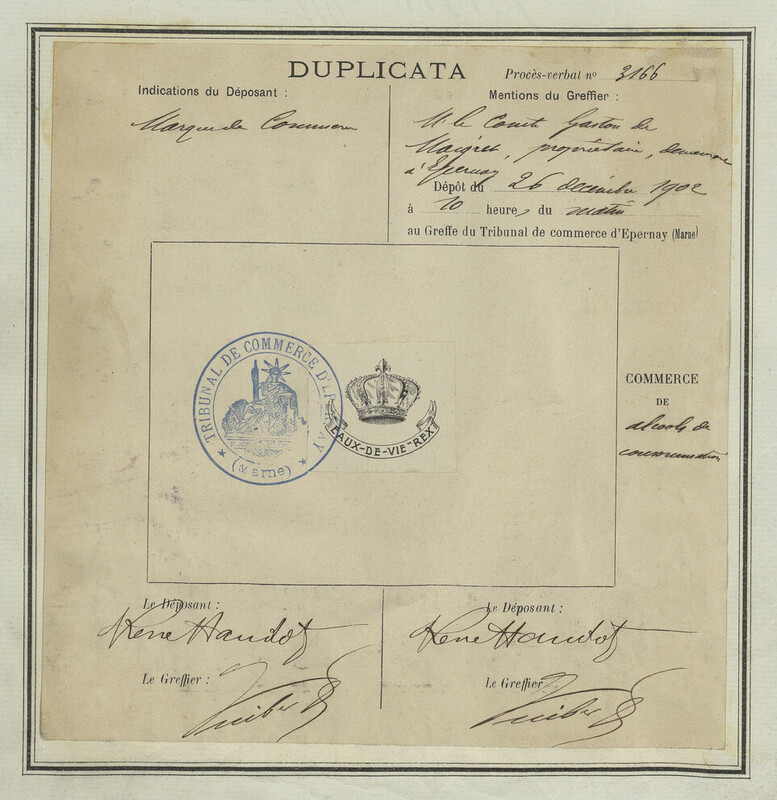 DUPLICATA
Procès-verbal nº 3166
Indications du Déposant :
Marque de Commerce
Mentions du Greffier :
M. le Comte Gaston de
Maigret, propriétaire, demeurant
à Epernay
Dépôt du 26 décembre 1902
à 10 heures du matin
au Greffe du Tribunal de commerce d'Epernay (Marne)
TRIBUNAL DE COMMERCE D'EPERNAY
(Marne)
EAUX-DE-VIE-REX
COMMERCE
DE
alcools de
consommation
Le Déposant :
René Haudot
Le Greffier :
Le Déposant :
René Haudot
Le Greffier